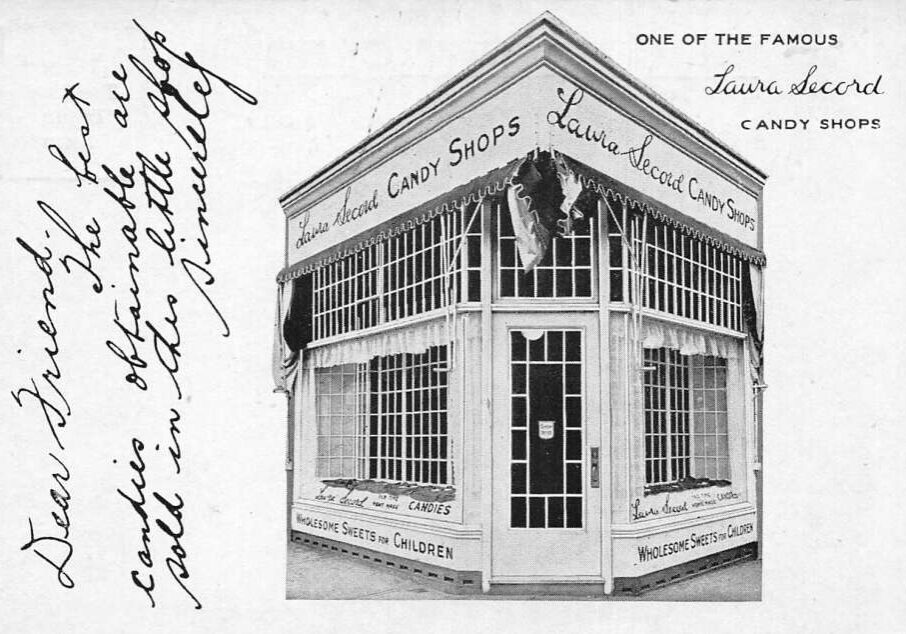 ONE OF THE FAMOUS
Laura Secord
CANDY SHOPS
Dear Friend -
The best
candies obtainable are
sold in this little shop
sincerely
Laura Secord CANDY SHOPS
Laura Secord CANDY SHOPS
Laura Secord OLD TIME HOME MADE CANDIES
WHOLESOME SWEETS FOR CHILDREN
Laura Secord OLD TIME HOME MADE CANDIES
WHOLESOME SWEETS FOR CHILDREN